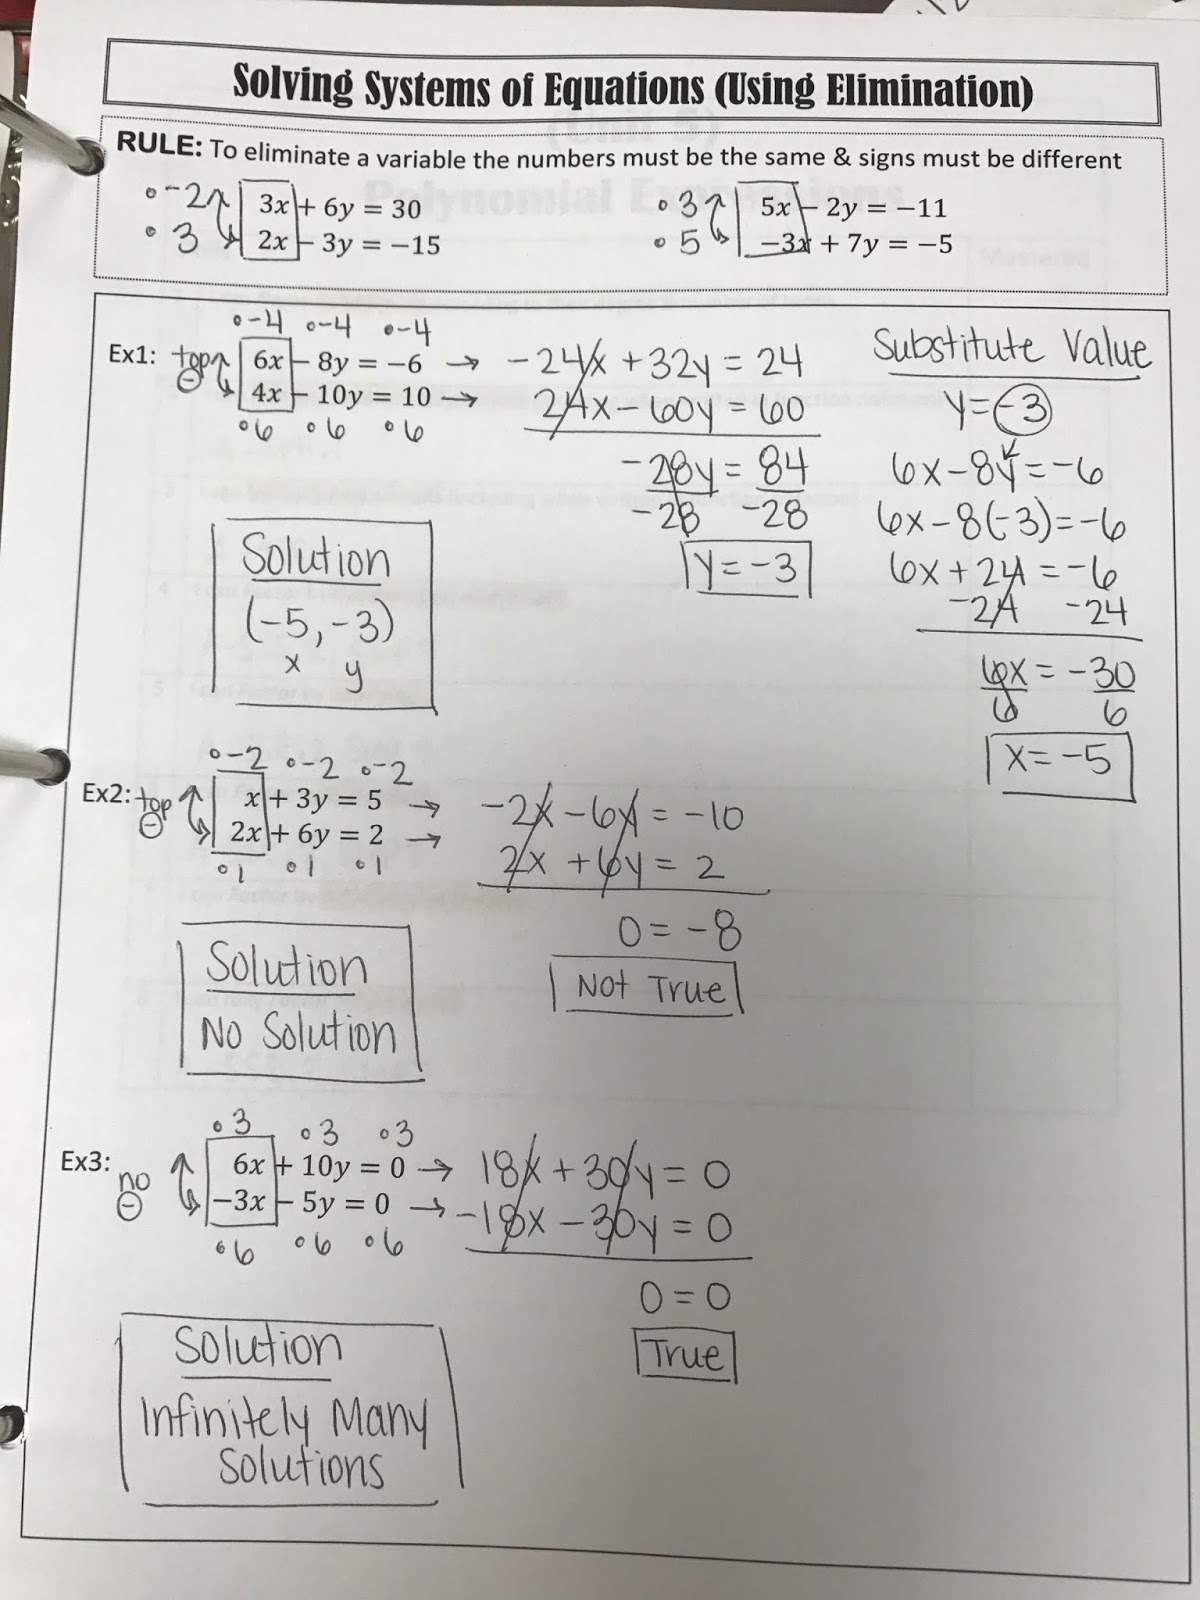 Solving Systems of Equations (Using Elimination)
RULE: To eliminate a variable the numbers must be the same & signs must be different
∘-2 3x + 6y = 30
∘ 3 2x - 3y = -15
∘ 3 5x - 2y = -11
∘ 5 -3x + 7y = -5
∘-4 ∘-4 ∘-4
Ex1: top ⊖ 6x - 8y = -6 → -24x + 32y = 24
4x - 10y = 10 → 24x - 60y = 60
∘6 ∘6 ∘6
-28y = 84
-28 -28
y = -3
Substitute Value
y = -3
6x - 8y = -6
6x - 8(-3) = -6
6x + 24 = -6
-24 -24
6x = -30
6 6
x = -5
Solution
(-5, -3)
x y
∘-2 ∘-2 ∘-2
Ex2: top ⊖ x + 3y = 5 → -2x - 6y = -10
2x + 6y = 2 → 2x + 6y = 2
∘1 ∘1 ∘1
0 = -8
Not True
Solution
No Solution
∘3 ∘3 ∘3
Ex3: no ⊖ 6x + 10y = 0 → 18x + 30y = 0
-3x - 5y = 0 → -18x - 30y = 0
∘6 ∘6 ∘6
0 = 0
True
Solution
Infinitely Many
Solutions